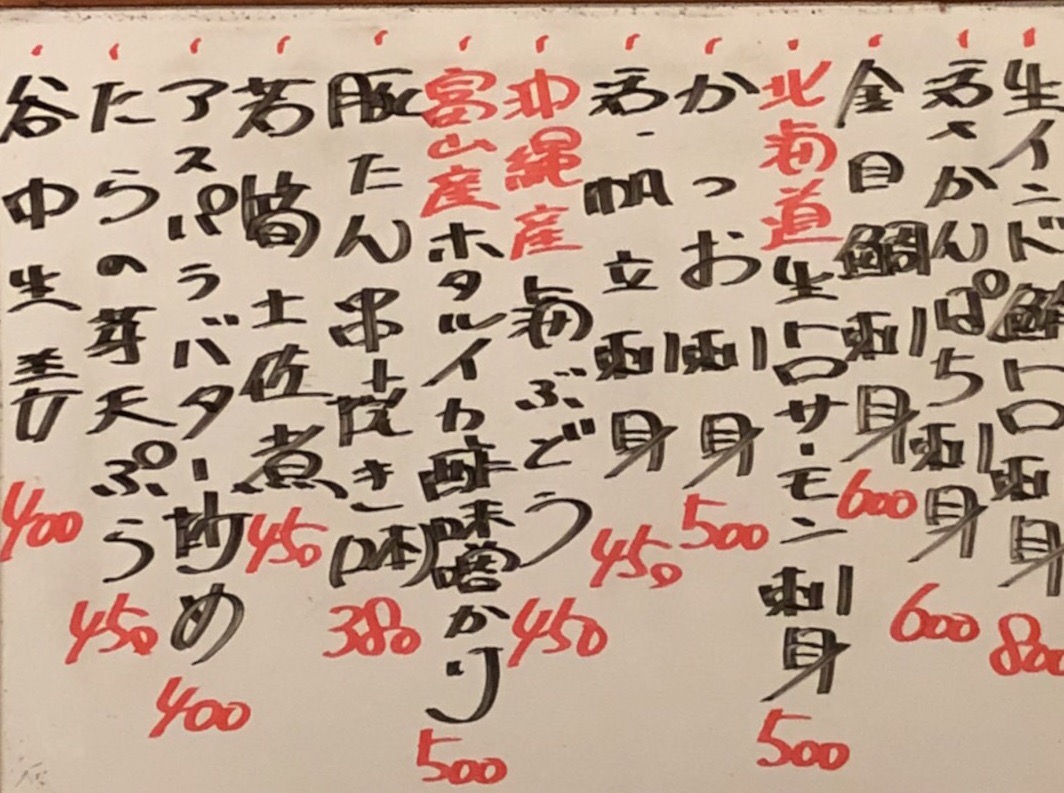 生インド鮪トロ刺身 800
かんぱち刺身 600
金目鯛刺身 600
北海道生トロサーモン刺身 500
かつお刺身 500
帆立刺身 450
沖縄産海ぶどう 450
富山産ホタルイカ酢味噌かけ 500
豚たん串焼き 380
若筍土佐煮 450
アスパラバター炒め 400
たらの芽天ぷら 450
谷中生姜 400